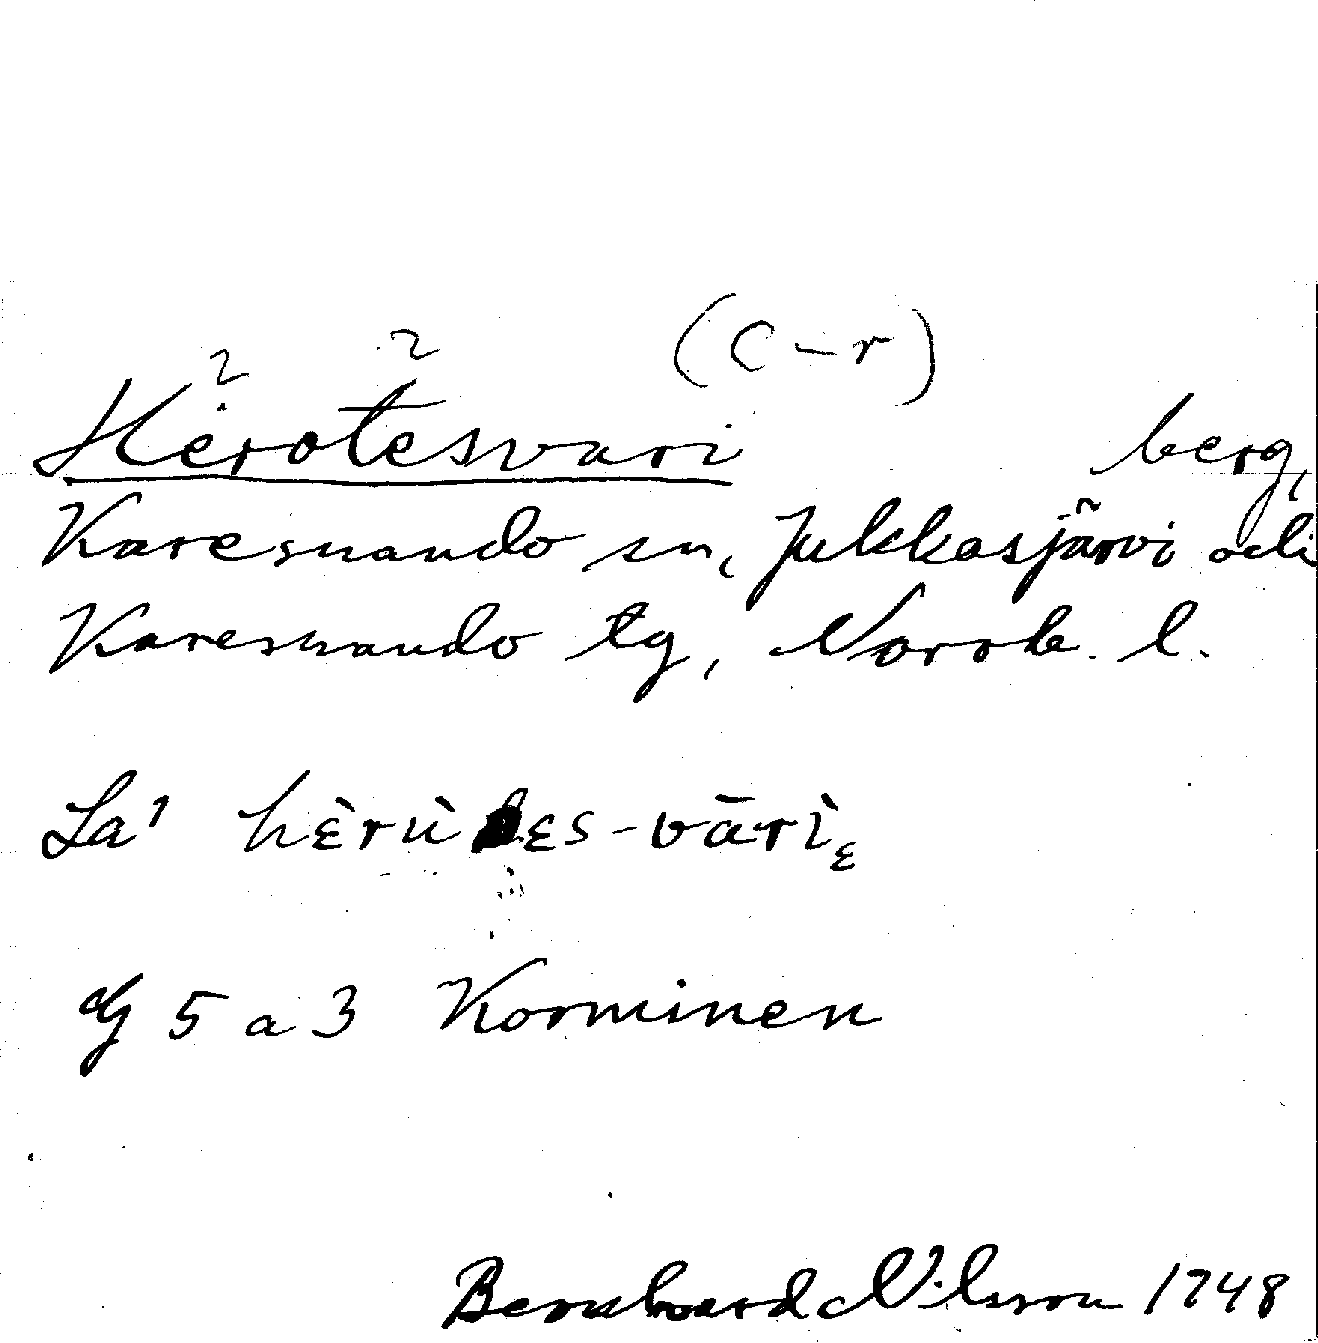 2 2 (C-r)
Hėrotesvari berg,
Karesuando sn, Jukkasjärvi och
Karesuando tg, Norrb. l.
La' hɛ̀rù ɛs-vārìɛ
dG 5 a 3 Korminen
Bernhard Nilsson 1948